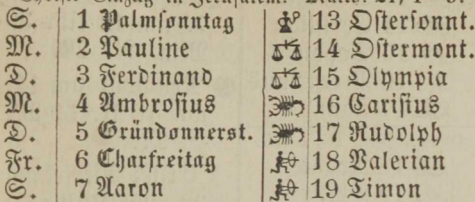 S. 1 Palmsonntag 13 Ostersonnt.
M. 2 Pauline 14 Ostermont.
D. 3 Ferdinand 15 Olympia
M. 4 Ambrosius 16 Carisius
D. 5 Gründonnerst. 17 Rudolph
Fr. 6 Charfreitag 18 Valerian
S. 7 Aaron 19 Timon